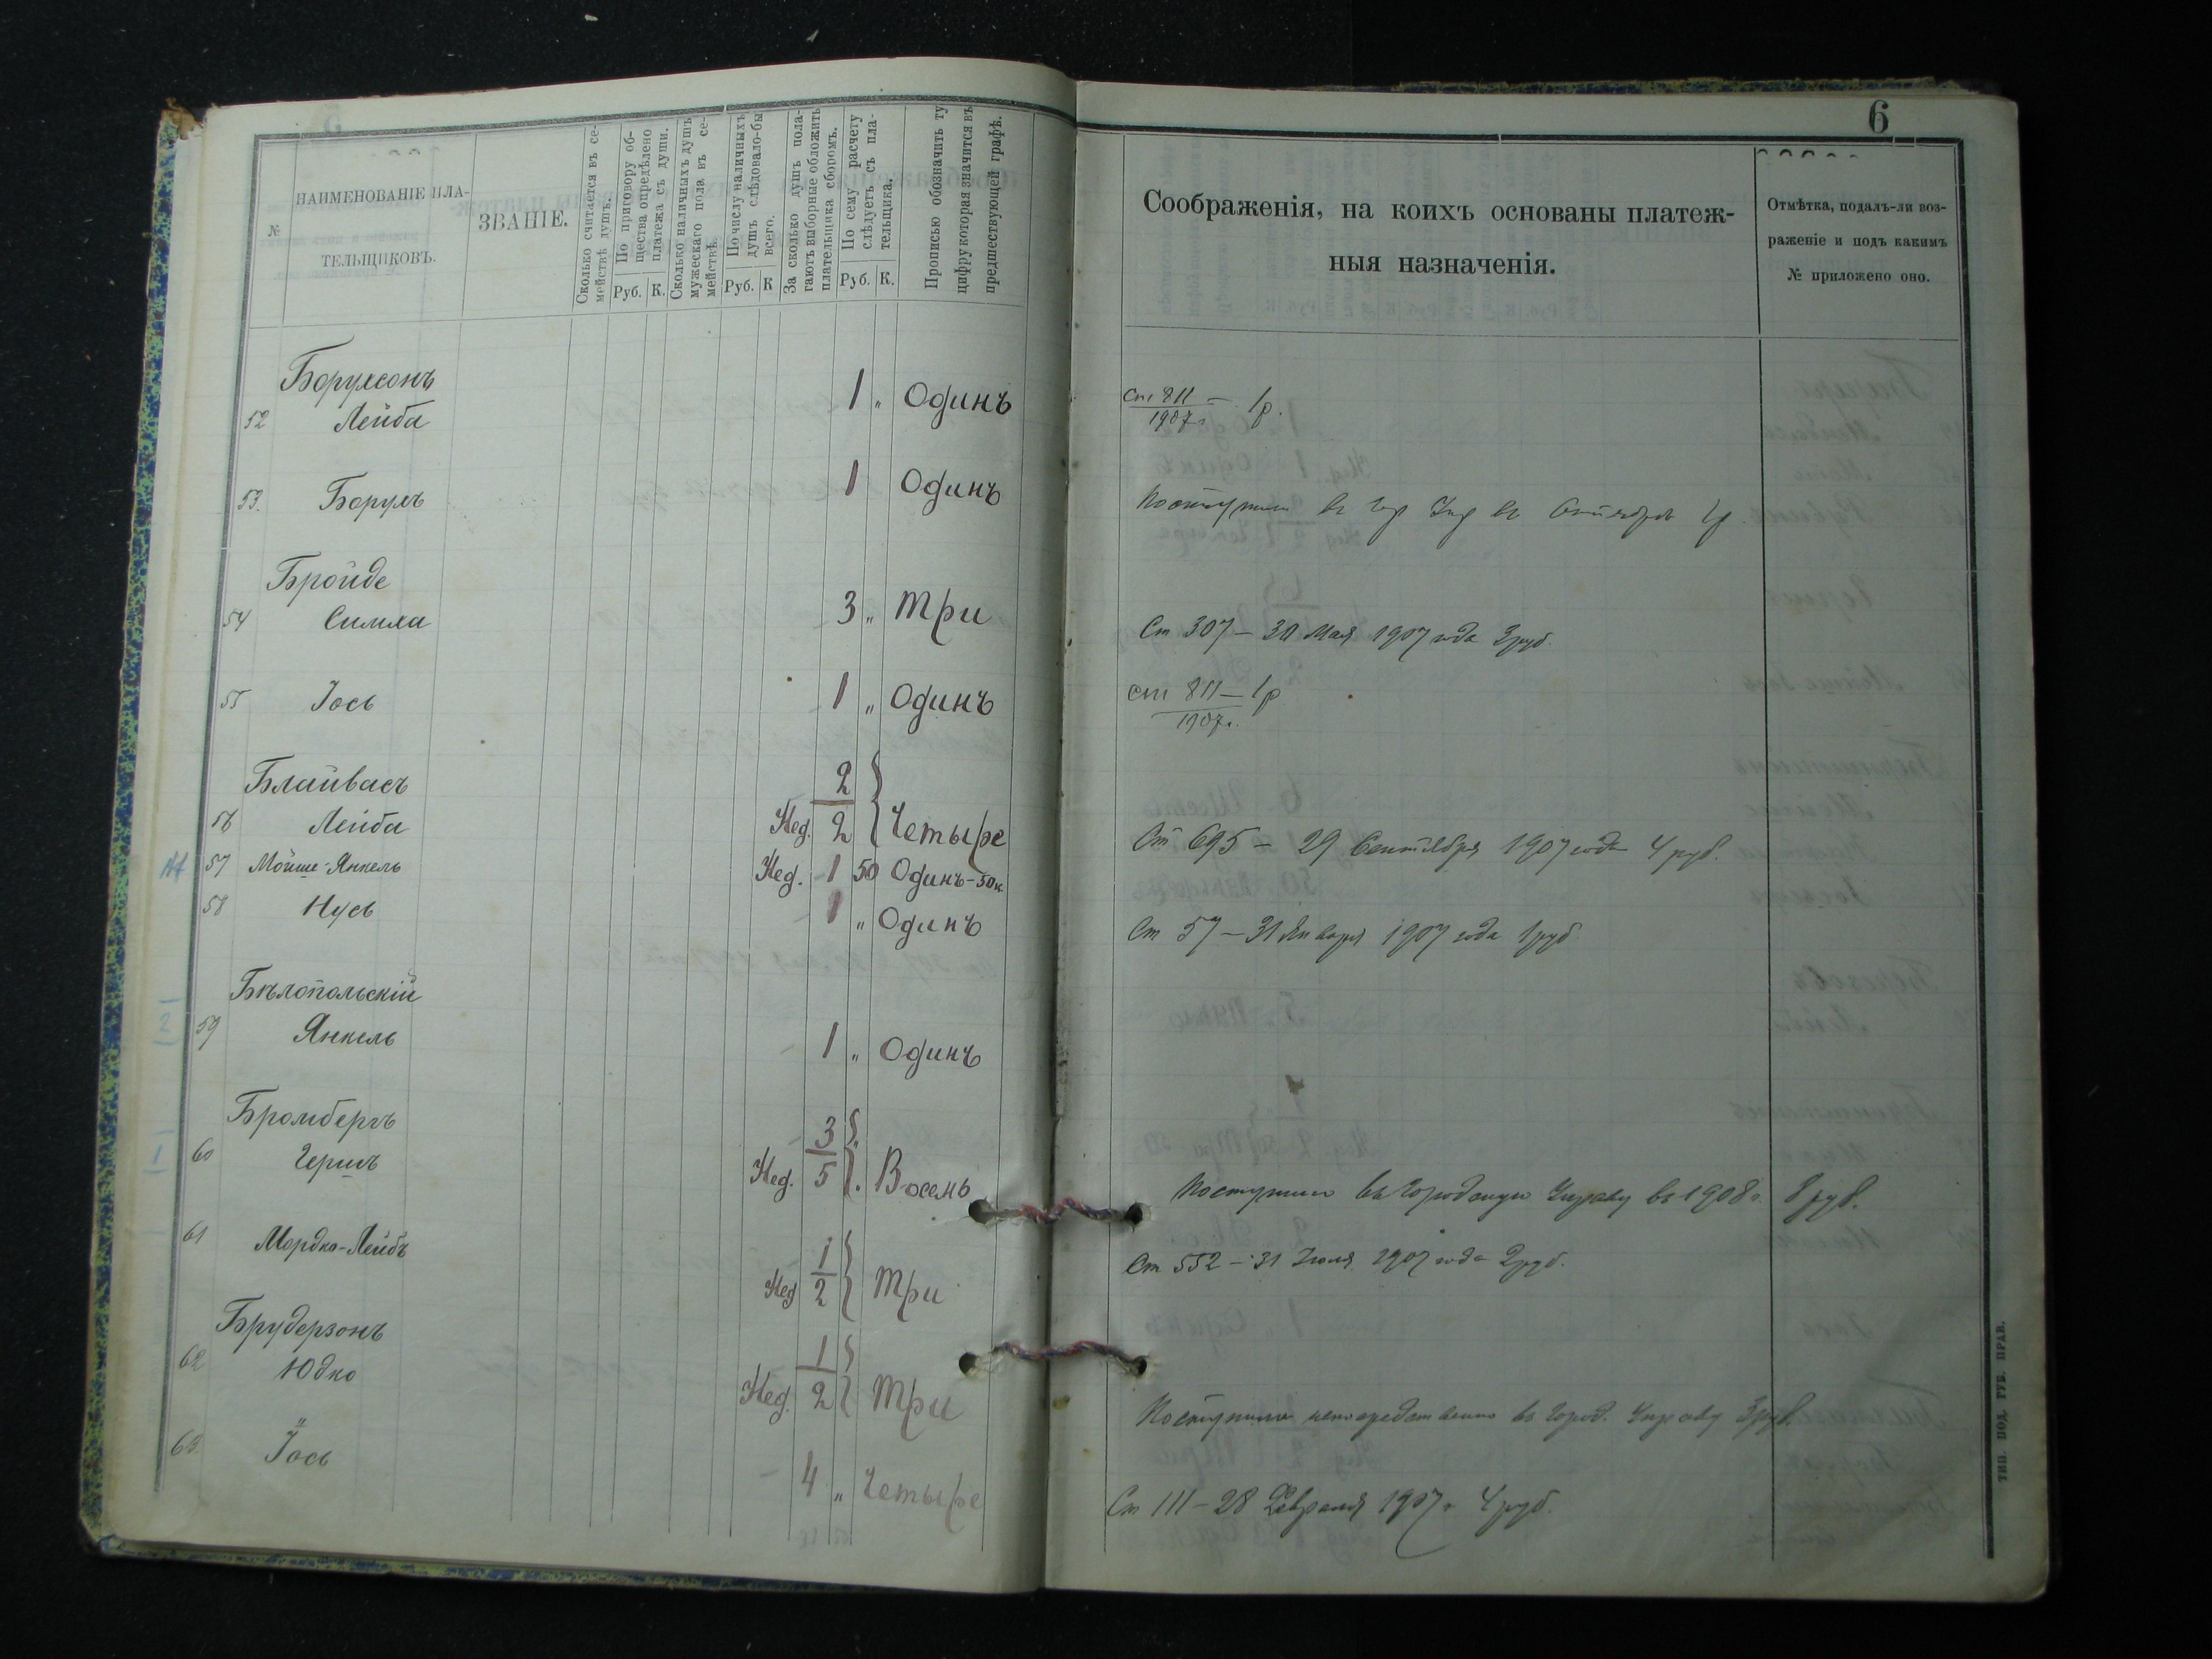 6
№
НАИМЕНОВАНІЕ ПЛА-
ТЕЛЬЩИКОВЪ.
ЗВАНІЕ.
Сколько считается въ се-
мействѣ душъ.
По приговору об-
щества опредѣлено
платежа съ души.
Руб. К.
Сколько наличныхъ душъ
мужескаго пола въ се-
мействѣ.
По числу наличныхъ
душъ слѣдовало-бы
всего.
Руб. К
За сколько душъ пола-
гаютъ выборные обложить
плательщика сборомъ.
По сему расчету
слѣдуетъ съ пла-
тельщика.
Руб. К.
Прописью обозначить ту
цифру которая значится въ
предшествующей графѣ.
Соображенія, на коихъ основаны платеж-
ныя назначенія.
Отмѣтка, подалъ-ли воз-
раженіе и подъ какимъ
№ приложено оно.
Борухсонъ
52 Лейба 1 „ Одинъ ст 811 — 1р.
1907г
53. Борухъ 1 Одинъ Поступили въ Гор Упр въ 1р
Бройде
54 Симха 3 „ Три Ст 307 — 30 Мая 1907 года 3 руб.
55 Іось 1 „ Одинъ ст 811 — 1р
1907г.
Блайвасъ 2
56 Лейба Нед. 2 Четыре Ст 695 — 29 Сентября 1907 года 4 руб.
57 Мойше-Янкель Нед. 1 50 Одинъ-50к.
58 Нусь 1 „ Одинъ Ст 57 — 31 Января 1907 года 1 руб
Бѣлопольскій
2 59 Янкель 1 „ Одинъ
Бромбергъ 3
1 60 Гершъ Нед. 5 Восемь Поступили въ Городскую Управу въ 1908 г. 8 руб.
61 Мордко-Лейбъ 1
Нед 2 Три Ст 552 — 31 Іюля 1907 года 2 руб.
Брудерзонъ 1
62 Юдко Нед. 2 Три Поступили непосредственно въ Город. Управу 3 руб.
63 Іось 4 „ Четыре Ст 111 — 28 Февраля 1907 г 4 руб.
ТИП. ПОД. ГУБ. ПРАВ.